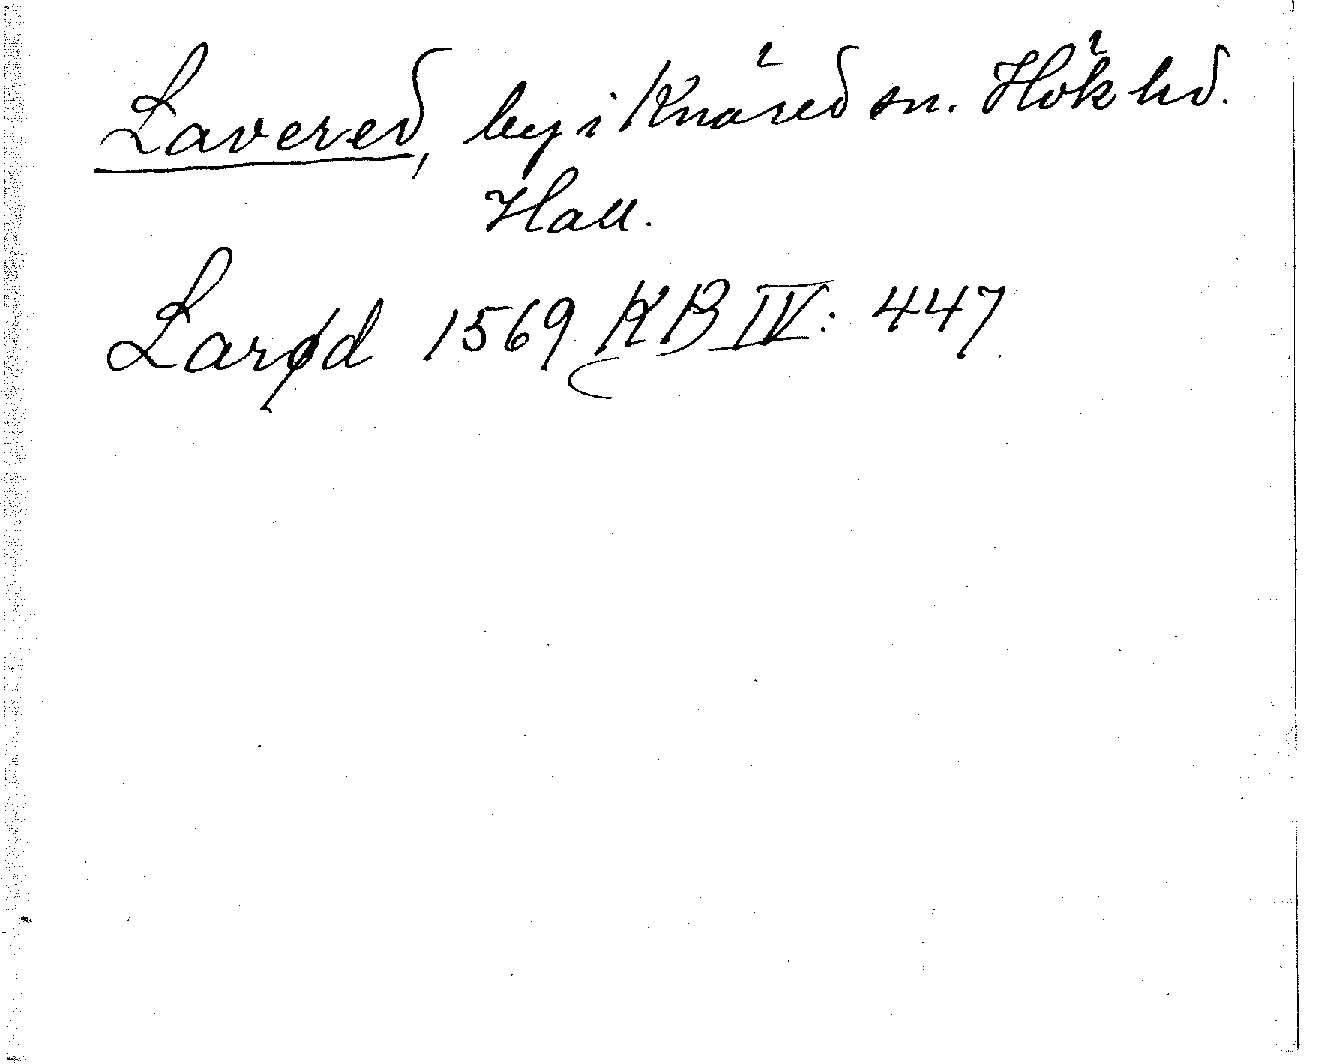 Lavered, by i Knäred sn. Hök hd.
Hall.
Larød 1569 KB IV: 447